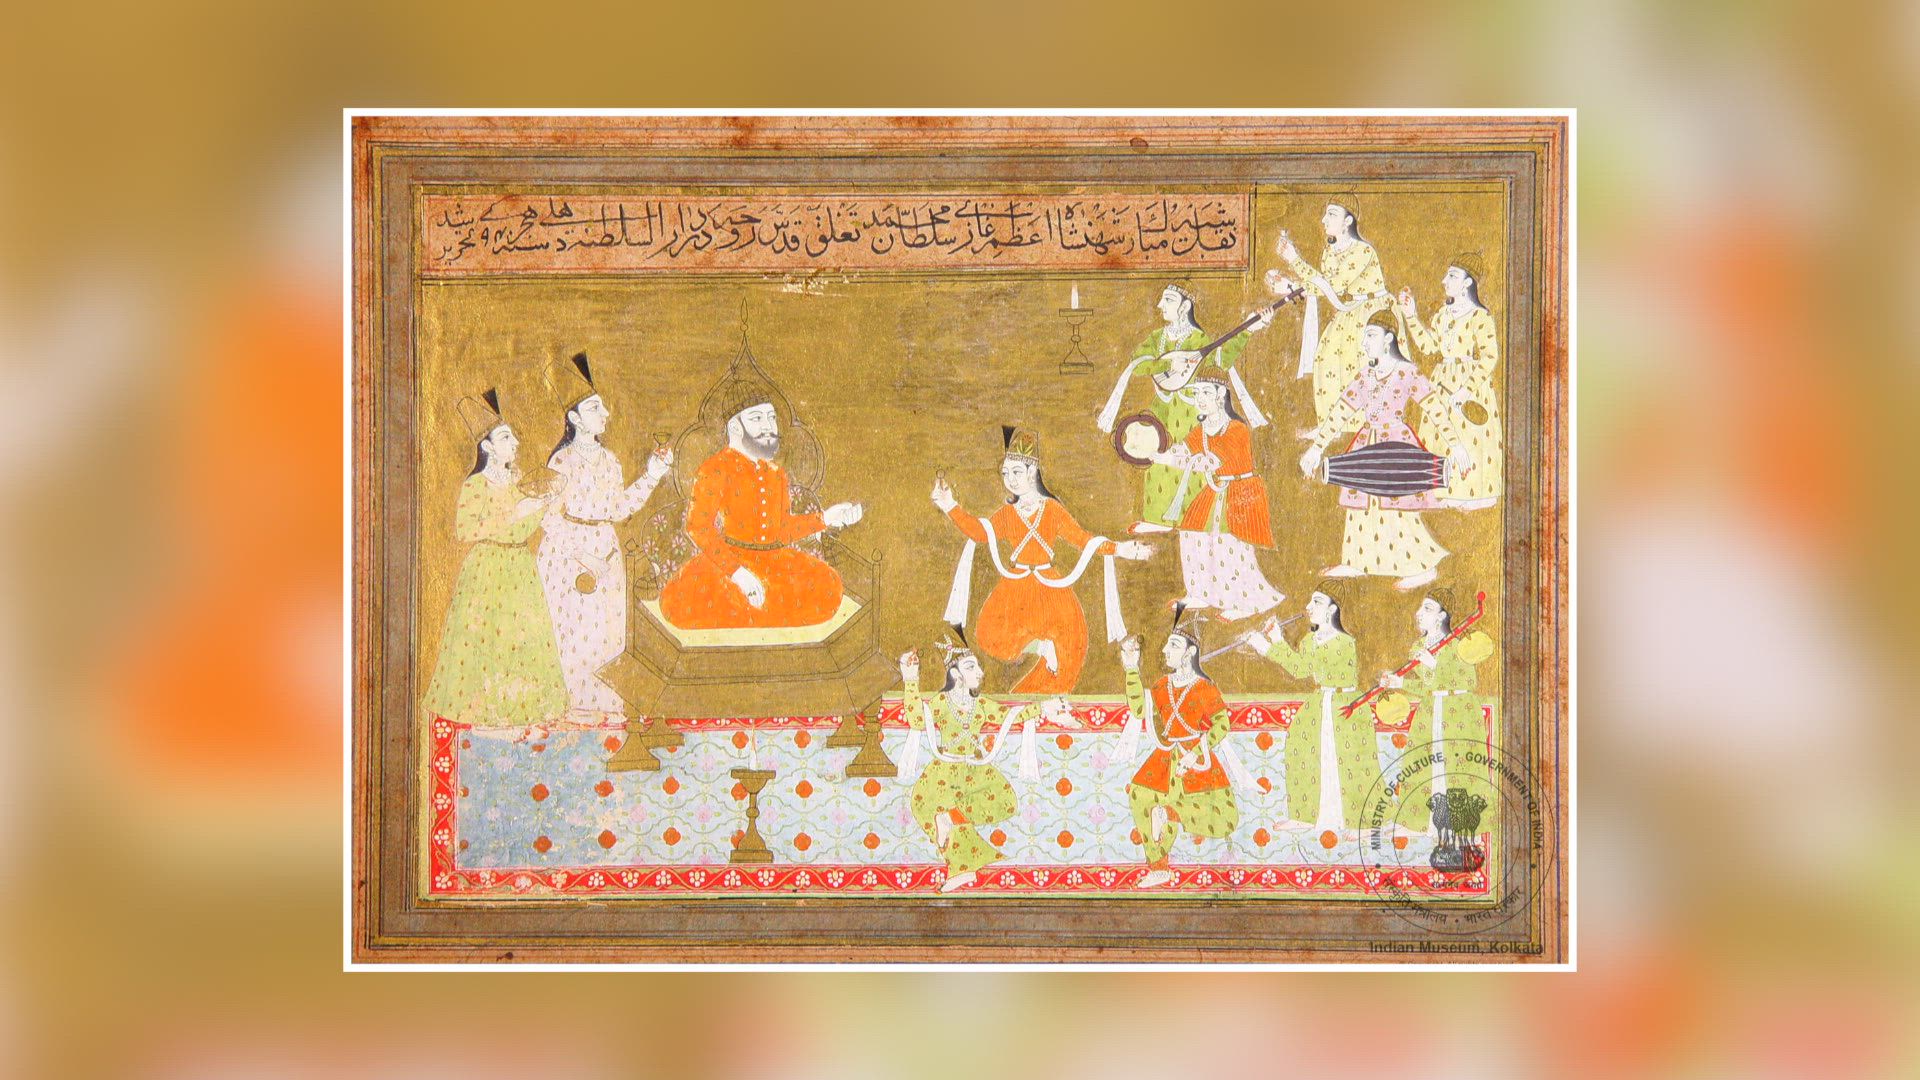 نقل شبیه مبارک شهنشاه اعظم غازی سلطان محمد تغلق قدس روحه در دار السلطنه دهلی سنه هجری تحریر شد
MINISTRY OF CULTURE • GOVERNMENT OF INDIA
सत्यमेव जयते
संस्कृति मंत्रालय • भारत सरकार
Indian Museum, Kolkata